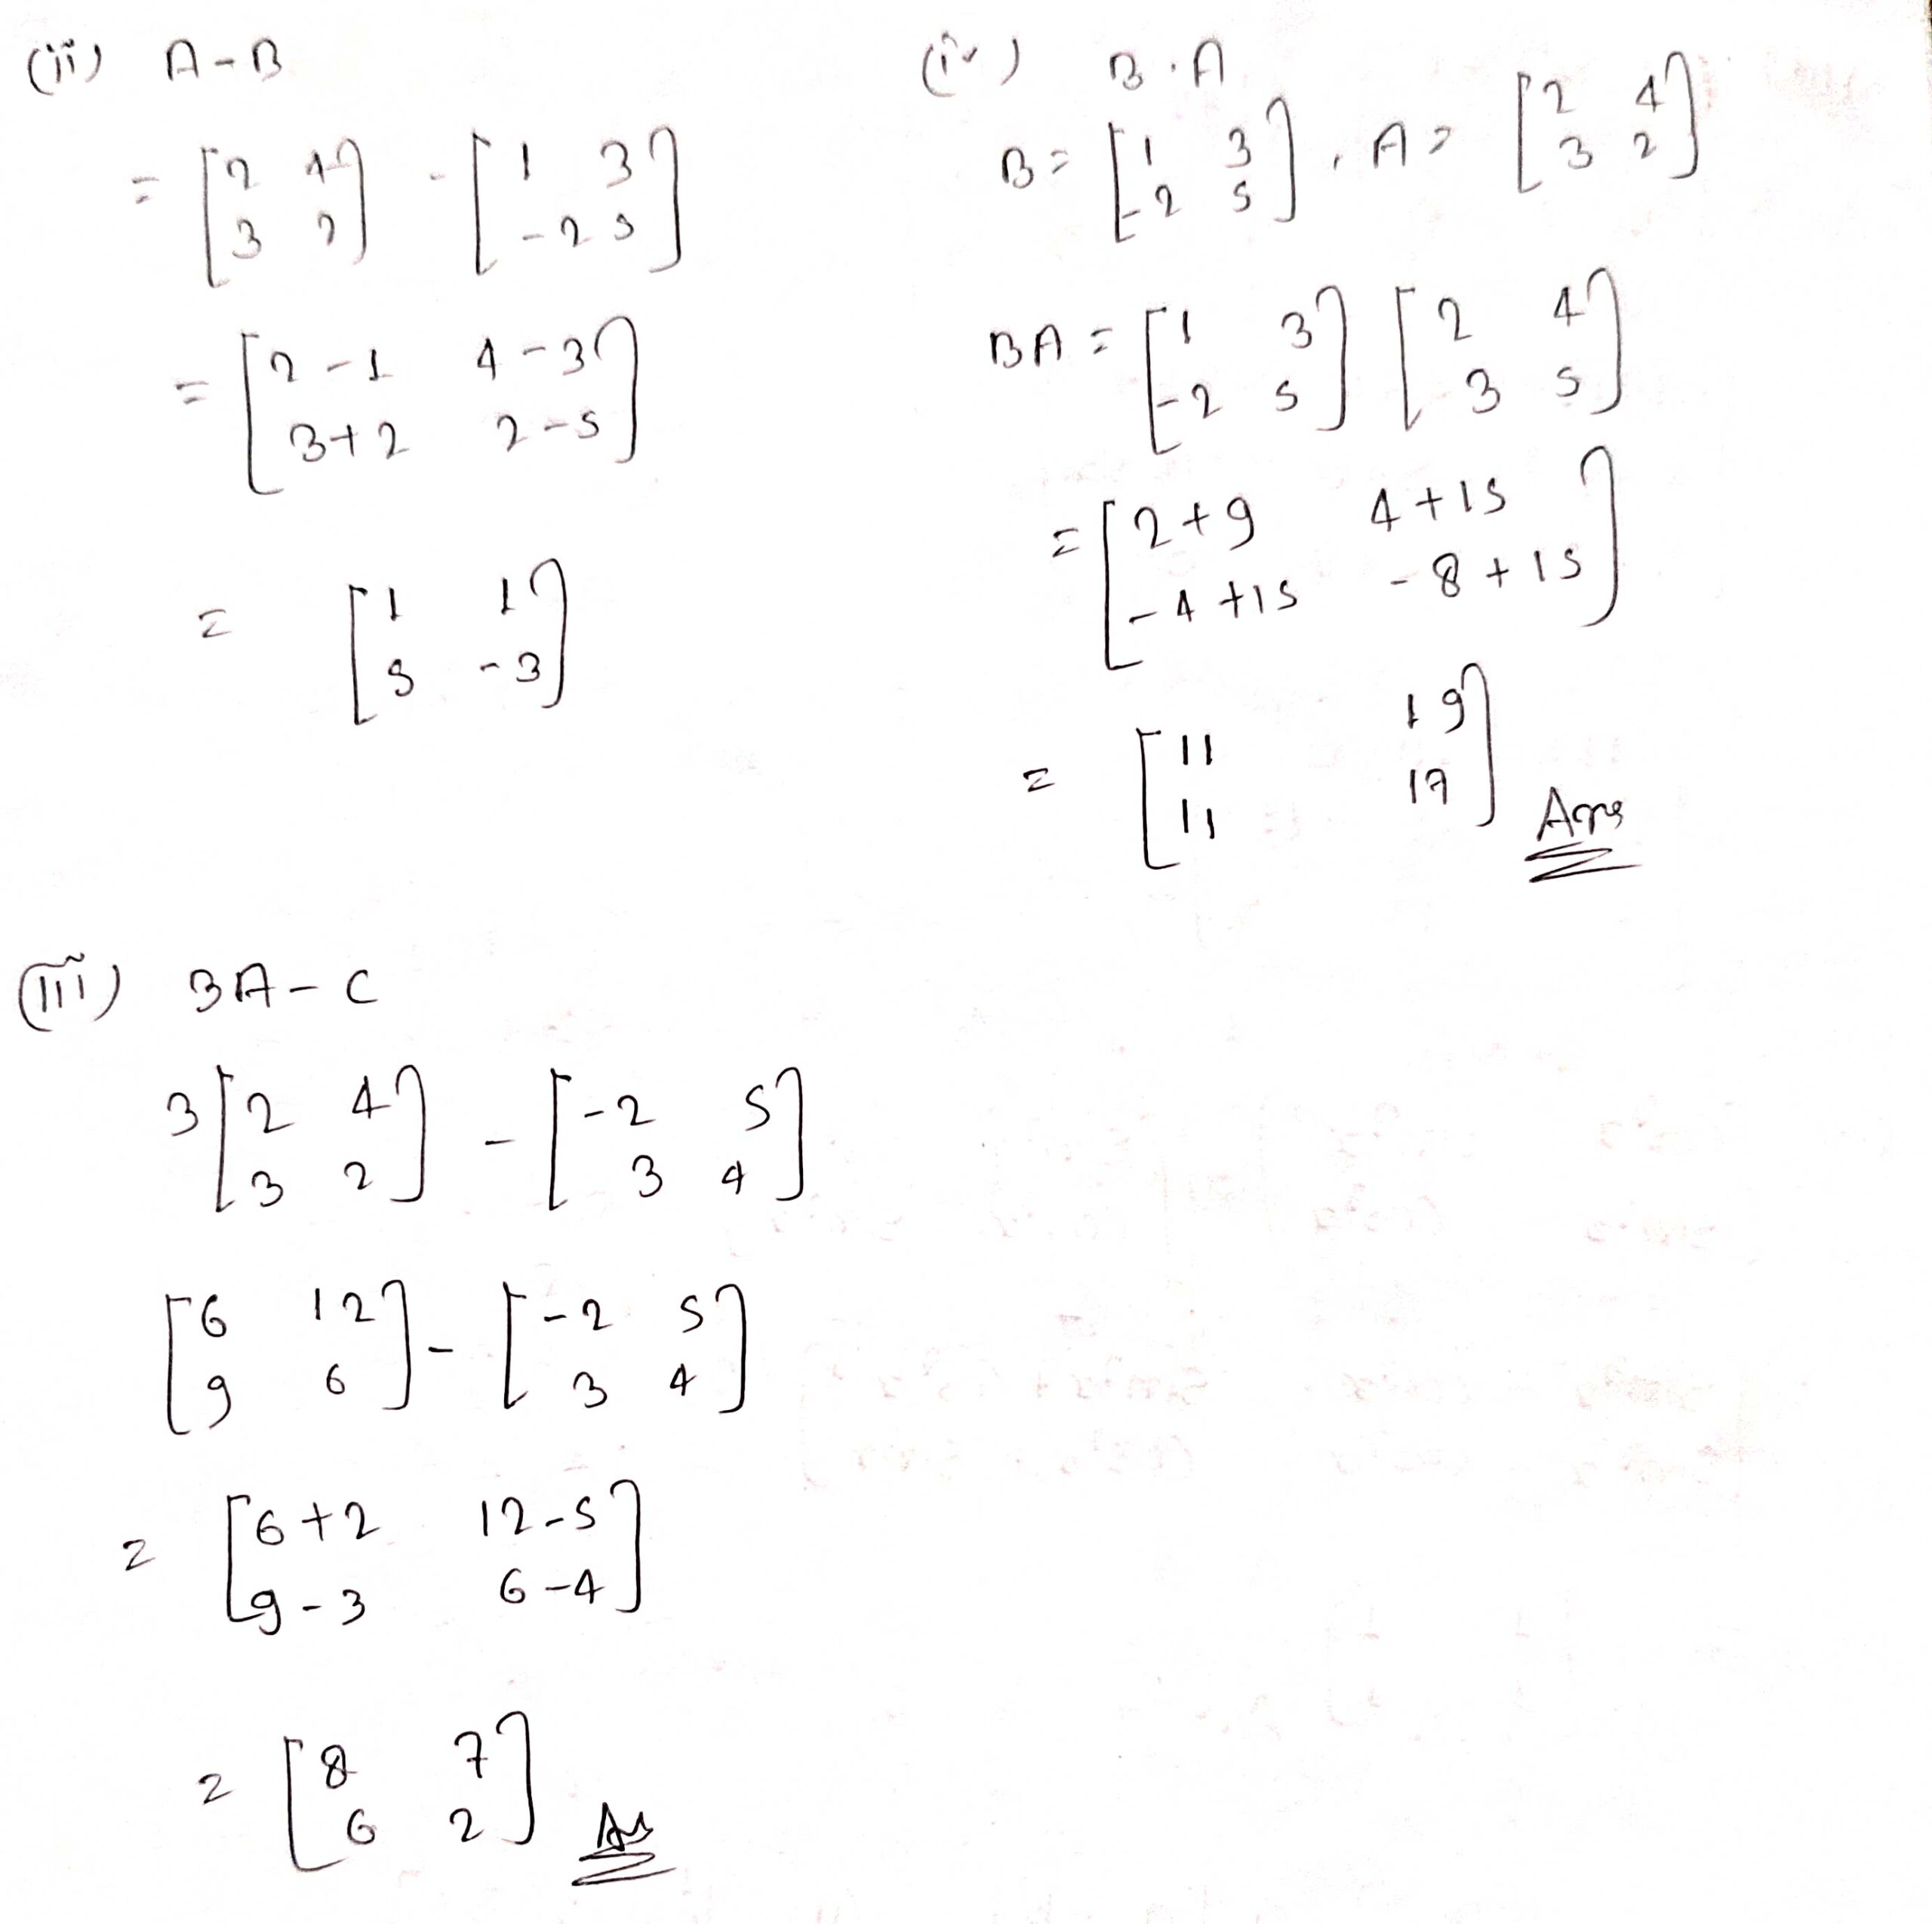 (ii) A-B
= [2 4] - [1 3]
[3 2] [-2 5]
= [2-1 4-3]
[3+2 2-5]
= [1 1]
[5 -3]
(iv) B.A
B= [1 3], A= [2 4]
[-2 5] [3 2]
BA = [1 3] [2 4]
[-2 5] [3 5]
= [2+9 4+15]
[-4+15 -8+15]
= [11 19]
[11 17] Ans
(iii) 3A-C
3[2 4] - [-2 5]
[3 2] [3 4]
[6 12] - [-2 5]
[9 6] [3 4]
= [6+2 12-5]
[9-3 6-4]
= [8 7]
[6 2] Ans